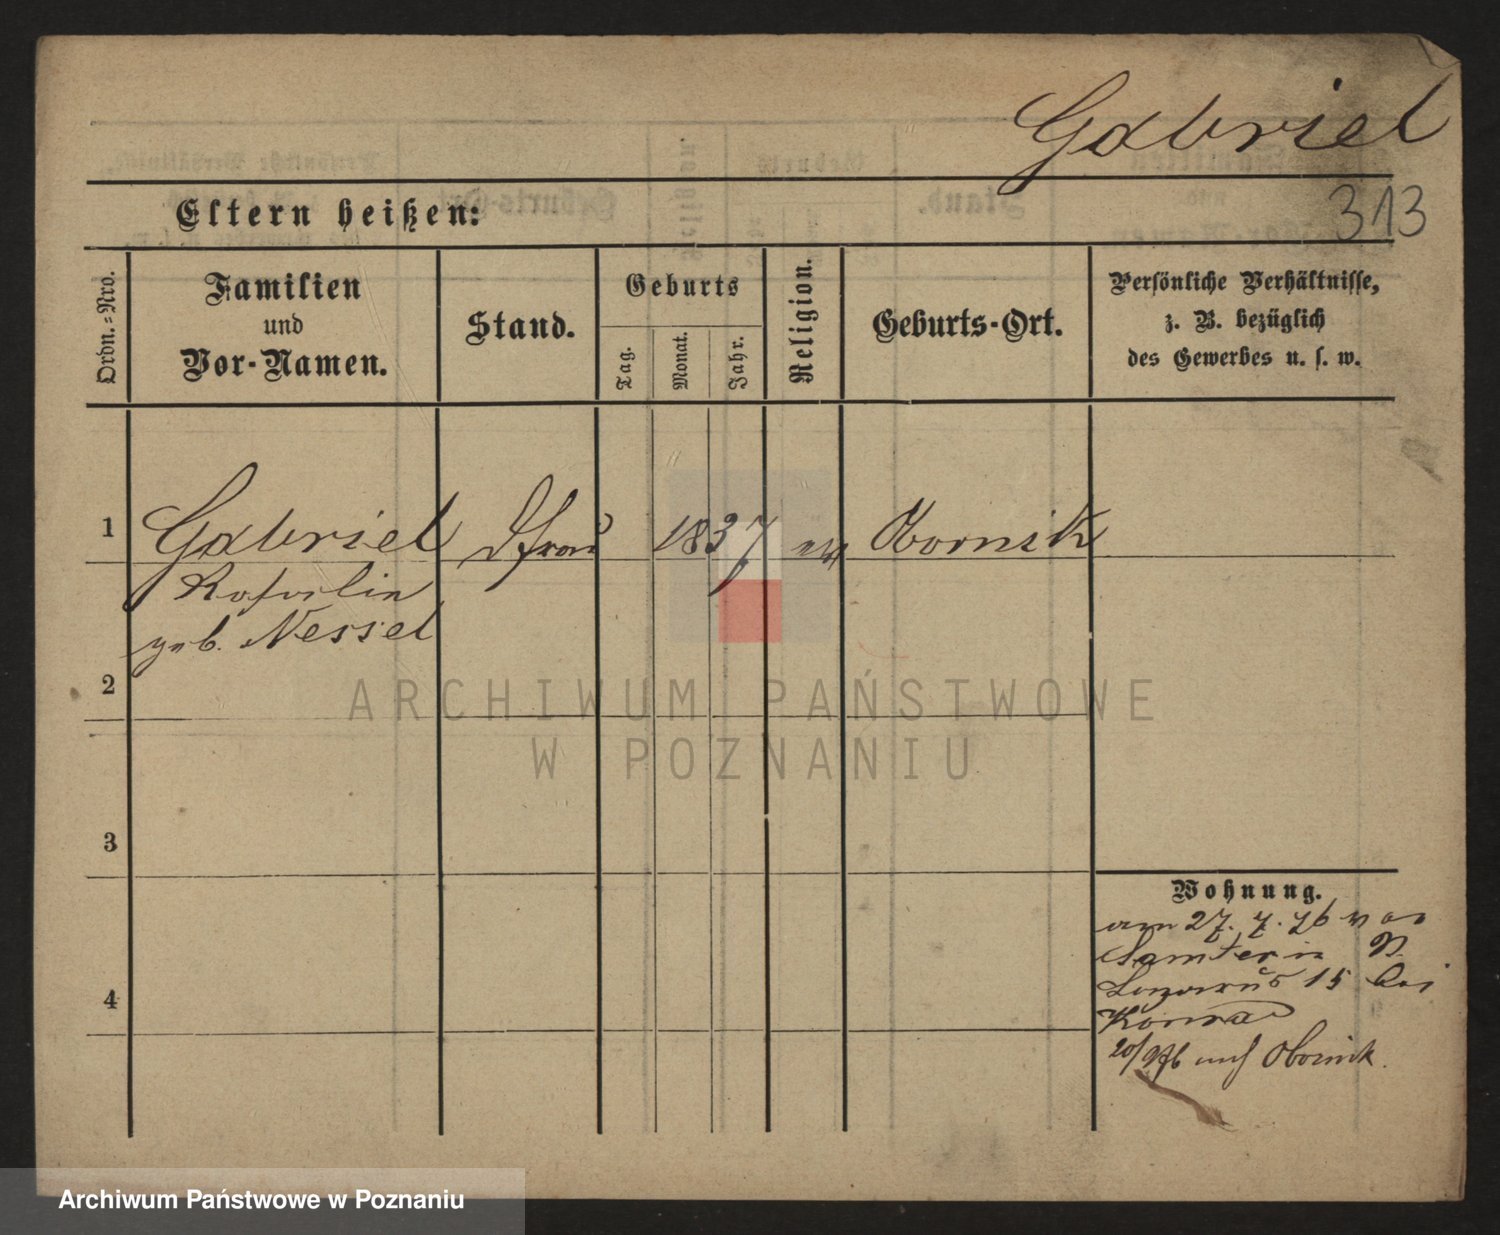 Gabriel
313
Eltern heißen:
Ordn.=Nro.
Familien
und
Vor-Namen.
Stand.
Geburts
Tag.
Monat.
Jahr.
Religion.
Geburts-Ort.
Persönliche Verhältnisse,
z. B. bezüglich
des Gewerbes u. s. w.
1
Gabriel
1837
Obornik
geb. Nessel
2
3
4
Wohnung.
27. 7. 76
Samter in
15 bei
Konrad
20/9 76 nach Obornik.
ARCHIWUM PAŃSTWOWE
W POZNANIU
Archiwum Państwowe w Poznaniu